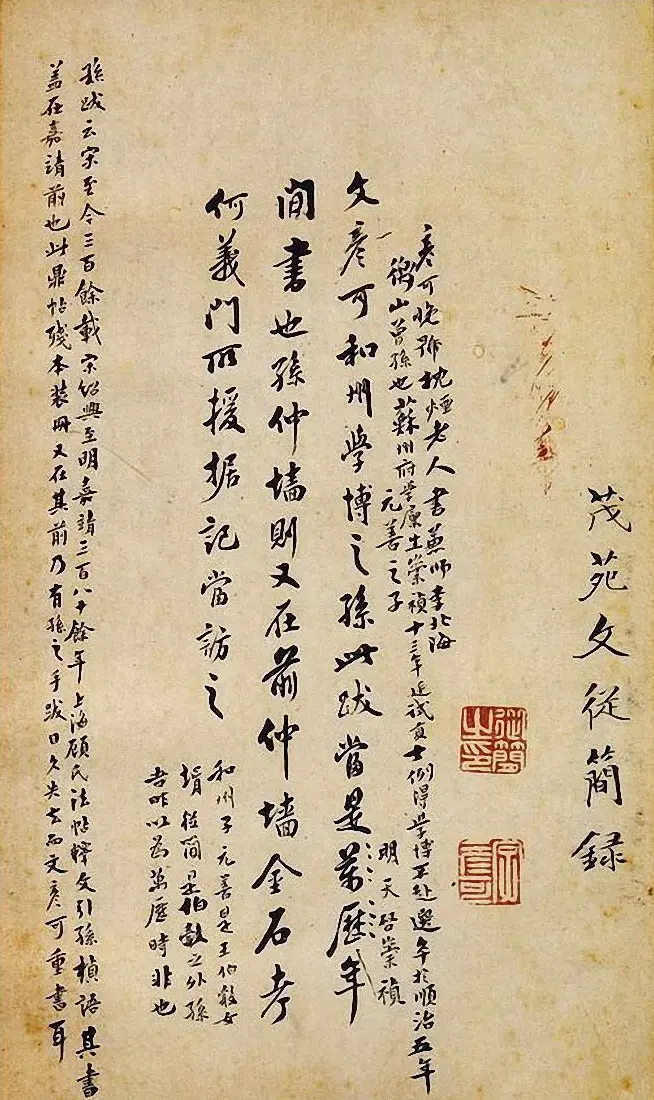 茂苑文從簡録
從簡之印
彦可
彦可晚號枕煙老人書兼師李北海
衡山曾孫也蘇州府學廩生崇禎十三年廷試貢士例得學博不赴選卒於順治五年
元善之子
文彦可和州學博之孫此跋當是萬歷年
明天啓崇禎
間書也孫仲墙則又在前仲墙金石考
何義門所援据記當訪之
和州子元善是王伯穀女
壻從簡是伯穀之外孫
吾昨以爲萬歷時非也
孫跋云宋至今三百餘載宋紹興至明嘉靖三百八十餘年上海顧氏法帖釋文引孫楨語其書
蓋在嘉靖前也此鼎帖殘本裝册又在其前乃有孫之手跋日久失去而文彦可重書耳